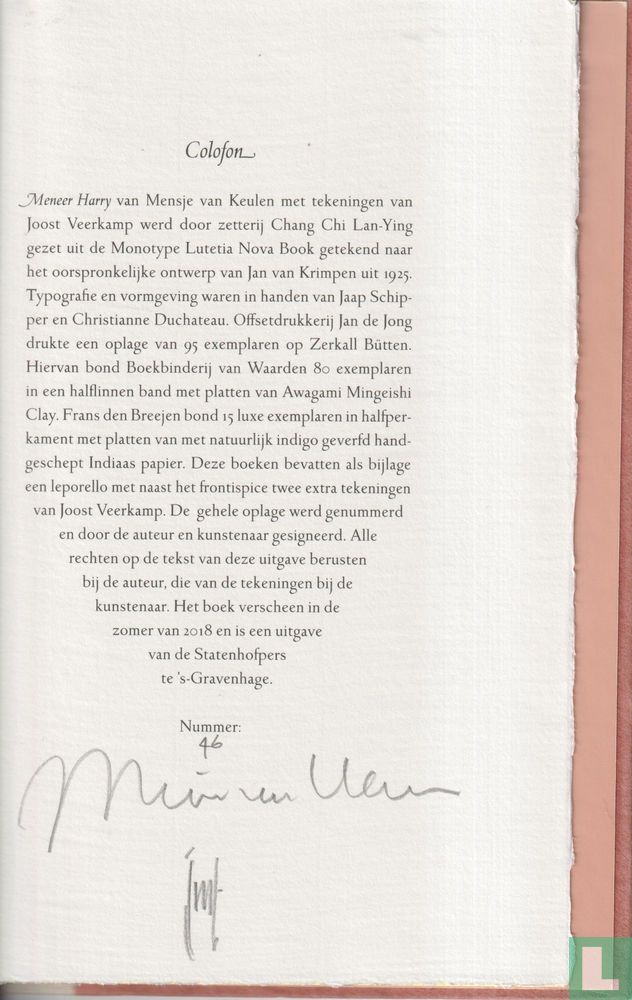 Colofon
Meneer Harry van Mensje van Keulen met tekeningen van
Joost Veerkamp werd door zetterij Chang Chi Lan-Ying
gezet uit de Monotype Lutetia Nova Book getekend naar
het oorspronkelijke ontwerp van Jan van Krimpen uit 1925.
Typografie en vormgeving waren in handen van Jaap Schip-
per en Christianne Duchateau. Offsetdrukkerij Jan de Jong
drukte een oplage van 95 exemplaren op Zerkall Bütten.
Hiervan bond Boekbinderij van Waarden 80 exemplaren
in een halflinnen band met platten van Awagami Mingeishi
Clay. Frans den Breejen bond 15 luxe exemplaren in halfper-
kament met platten van met natuurlijk indigo geverfd hand-
geschept Indiaas papier. Deze boeken bevatten als bijlage
een leporello met naast het frontispice twee extra tekeningen
van Joost Veerkamp. De gehele oplage werd genummerd
en door de auteur en kunstenaar gesigneerd. Alle
rechten op de tekst van deze uitgave berusten
bij de auteur, die van de tekeningen bij de
kunstenaar. Het boek verscheen in de
zomer van 2018 en is een uitgave
van de Statenhofpers
te 's-Gravenhage.
Nummer:
46
L